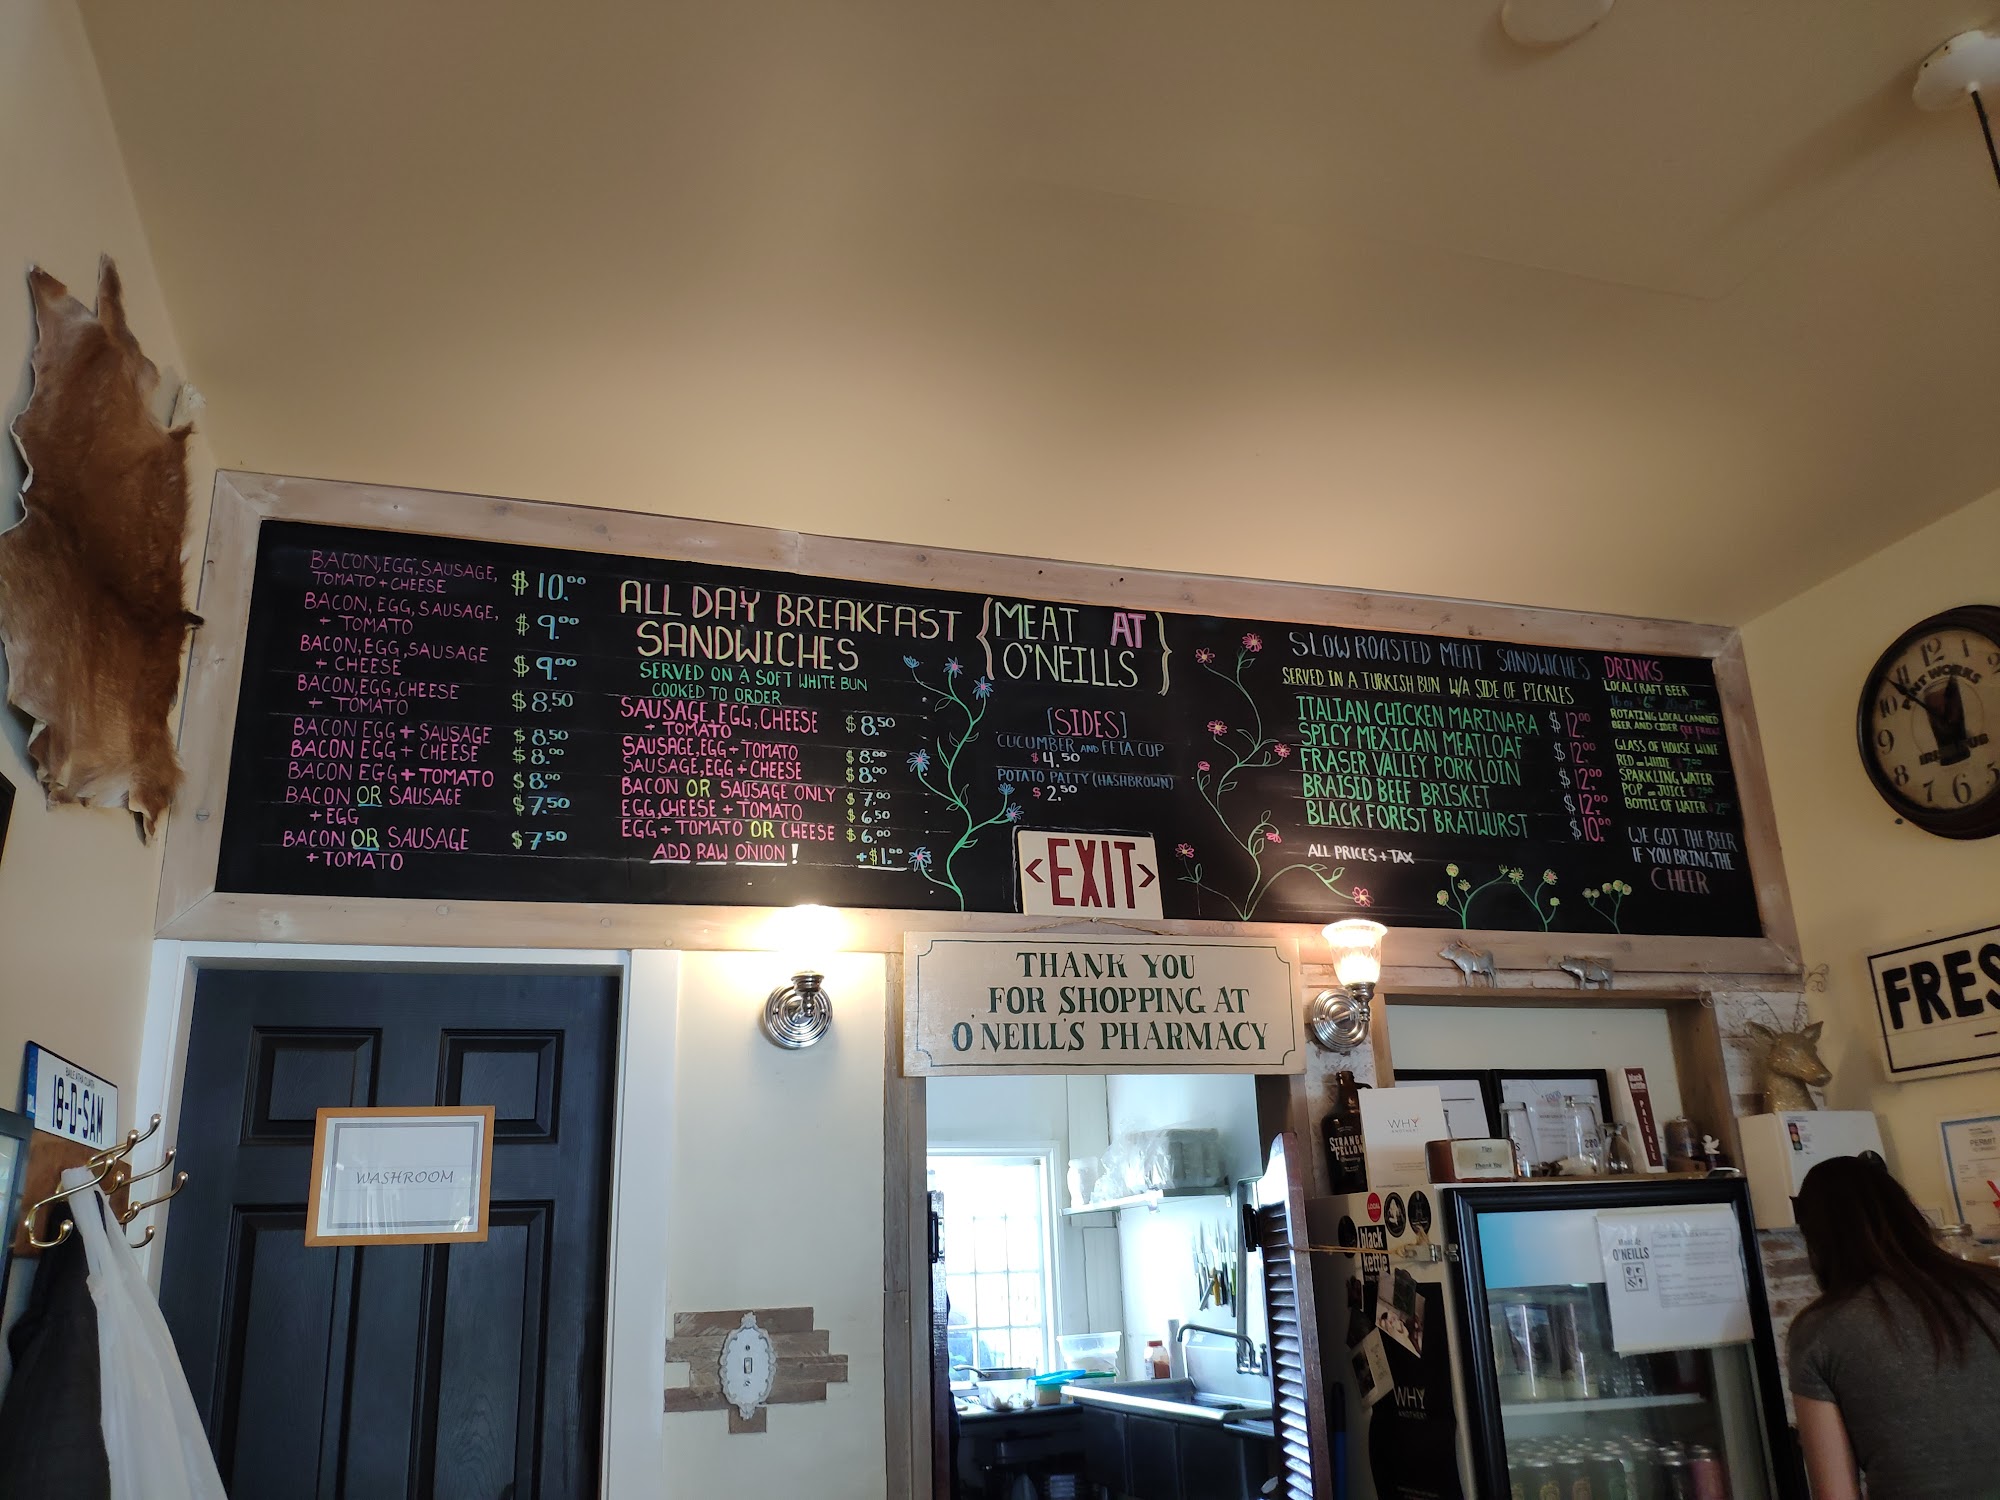 BACON, EGG, SAUSAGE,
TOMATO + CHEESE $10.00
BACON, EGG, SAUSAGE,
+ TOMATO $9.00
BACON, EGG, SAUSAGE
+ CHEESE $9.00
BACON, EGG, CHEESE
+ TOMATO $8.50
BACON EGG + SAUSAGE $8.50
BACON EGG + CHEESE $8.00
BACON EGG + TOMATO $8.00
BACON OR SAUSAGE
+ EGG $7.50
BACON OR SAUSAGE
+ TOMATO $7.50
ALL DAY BREAKFAST
SANDWICHES
SERVED ON A SOFT WHITE BUN
COOKED TO ORDER
SAUSAGE, EGG, CHEESE
+ TOMATO $8.50
SAUSAGE, EGG + TOMATO $8.00
SAUSAGE, EGG + CHEESE $8.00
BACON OR SAUSAGE ONLY $7.00
EGG, CHEESE + TOMATO $6.50
EGG + TOMATO OR CHEESE $6.00
ADD RAW ONION! +$1.00
{MEAT AT
O'NEILLS}
[SIDES]
CUCUMBER AND FETA CUP
$4.50
POTATO PATTY (HASHBROWN)
$2.50
SLOW ROASTED MEAT SANDWICHES
SERVED IN A TURKISH BUN W/A SIDE OF PICKLES
ITALIAN CHICKEN MARINARA $12.00
SPICY MEXICAN MEATLOAF $12.00
FRASER VALLEY PORK LOIN $12.00
BRAISED BEEF BRISKET $12.00
BLACK FOREST BRATWURST $10.00
ALL PRICES + TAX
DRINKS
LOCAL CRAFT BEER
ROTATING LOCAL CANNED
BEER AND CIDER
GLASS OF HOUSE WINE
RED OR WHITE
SPARKLING WATER
POP OR JUICE
BOTTLE OF WATER
WE GOT THE BEER
IF YOU BRING THE
CHEER
<EXIT>
THANK YOU
FOR SHOPPING AT
O'NEILL'S PHARMACY
WASHROOM
BAILE ÁTHA CLIATH
18-D-SAM
12
10
9
8
7
6
5
IRISH PUB
FRES
PERMIT
WHY
Thank You
PALE ALE
LOCAL
black
kettle
WHY
Meat At
O'NEILLS